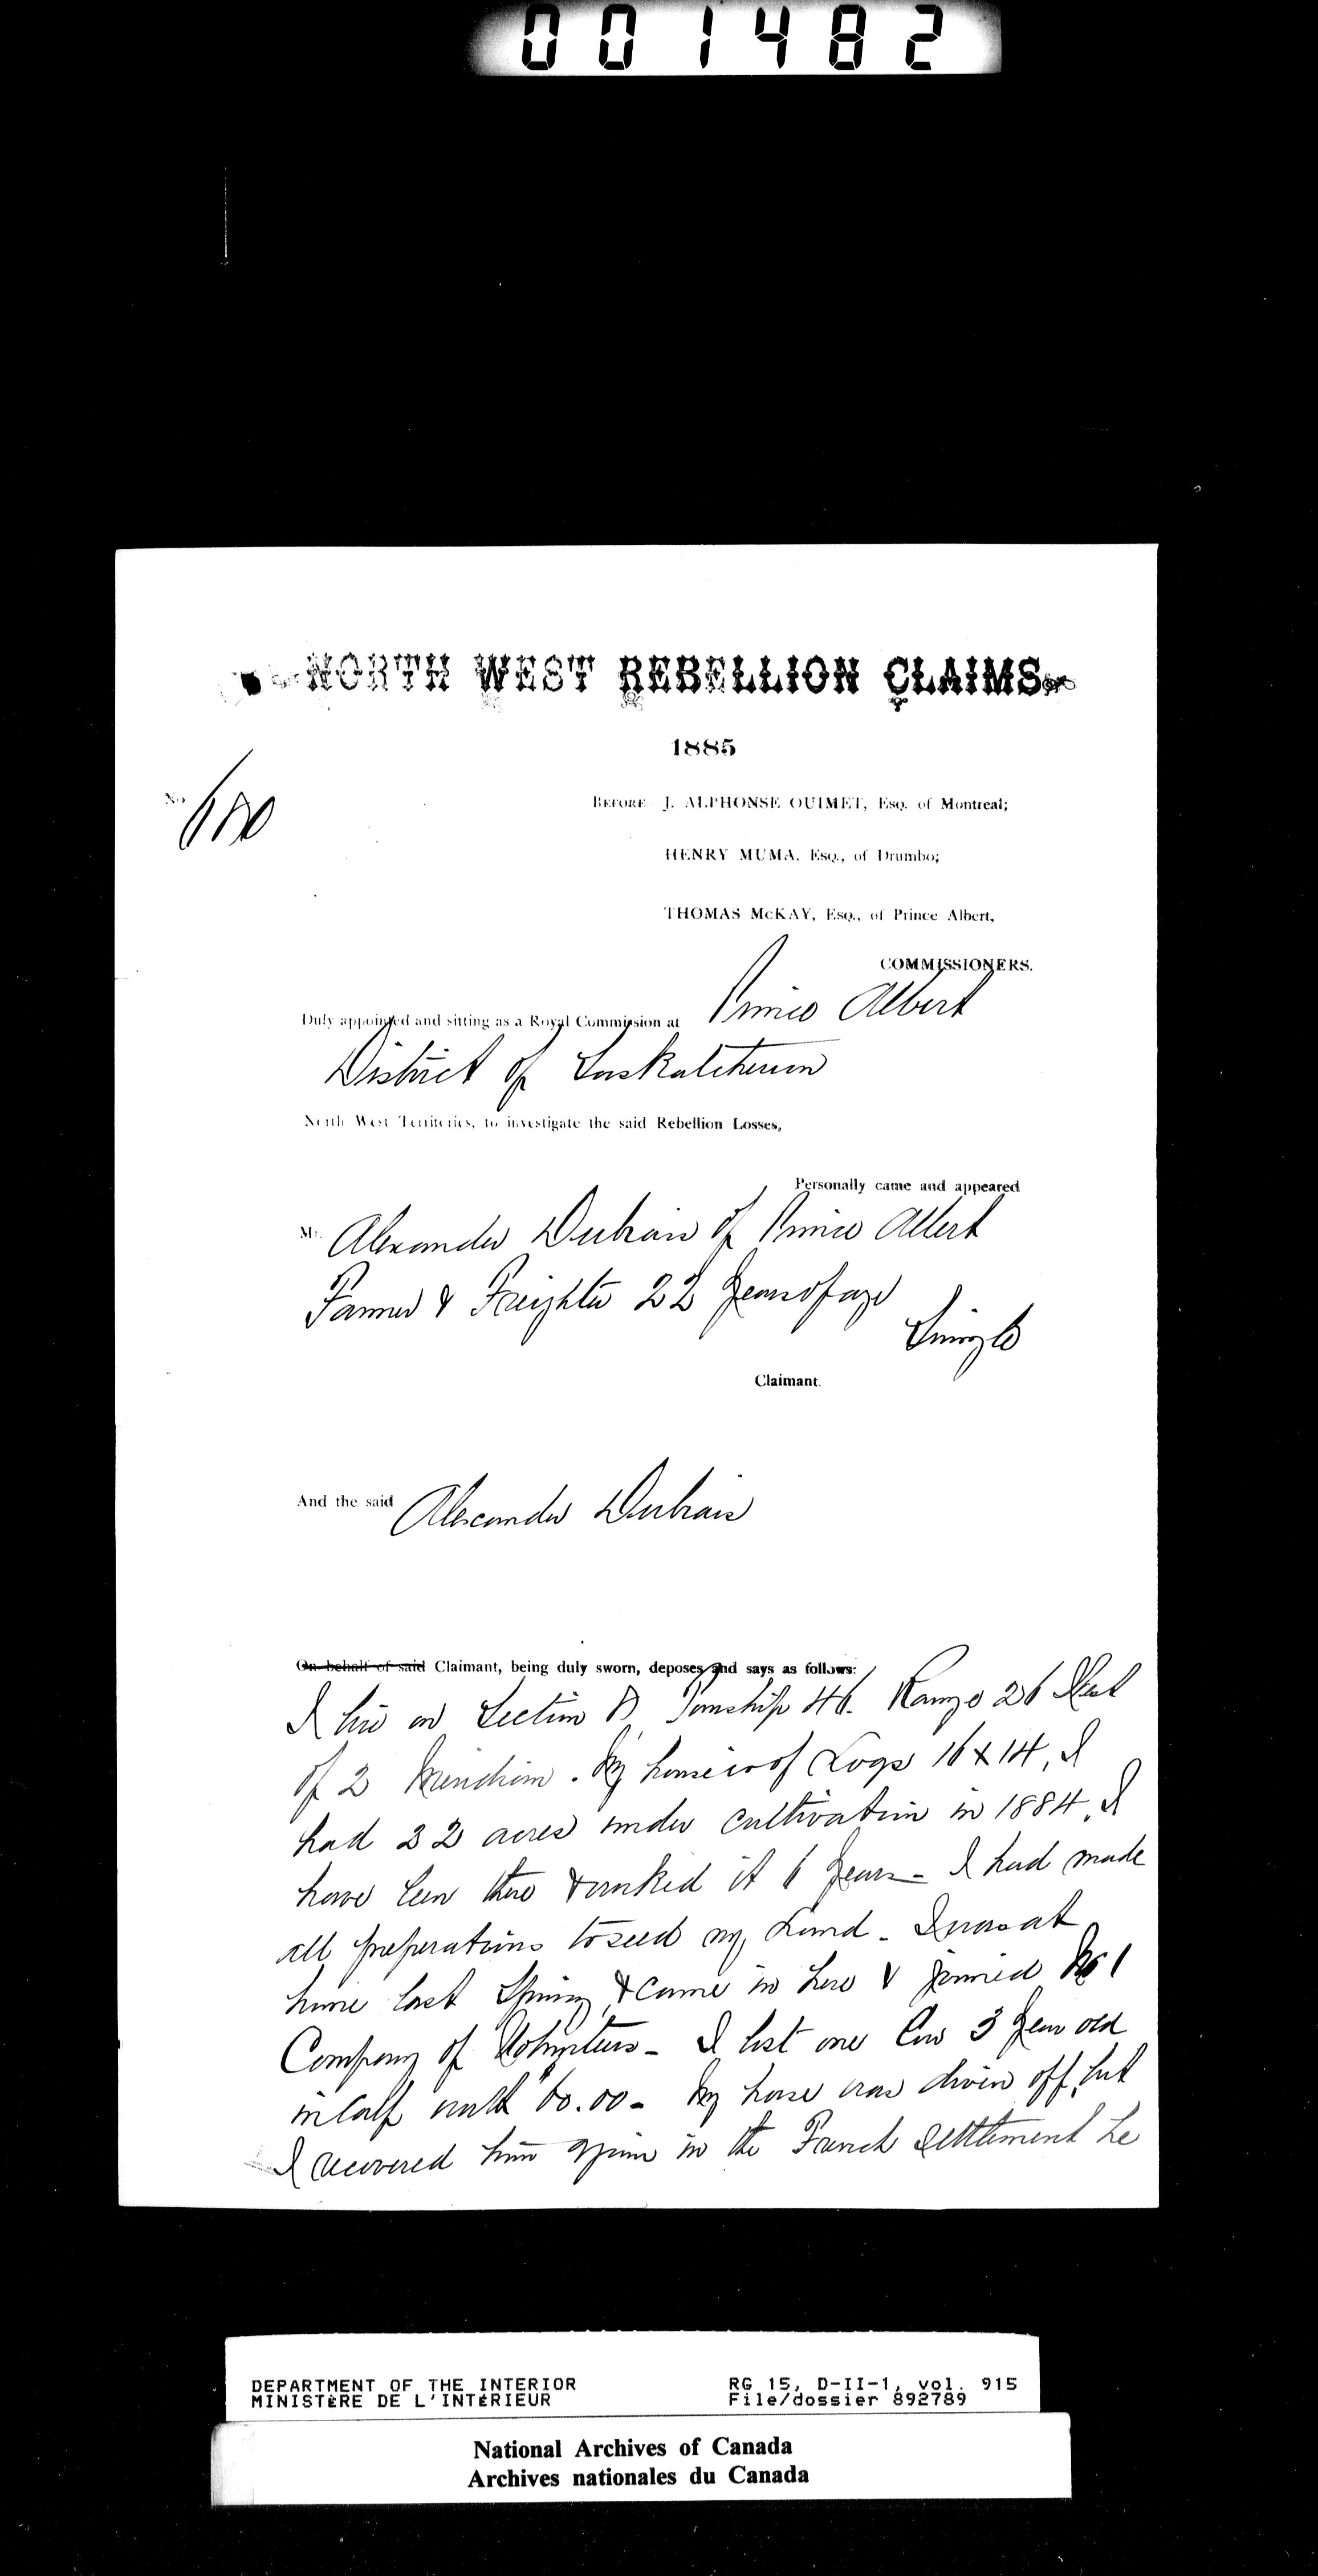 001482
NORTH WEST REBELLION CLAIMS.
1885
No.
BEFORE J. ALPHONSE OUIMET, Esq. of Montreal;
HENRY MUMA, Esq., of Drumbo;
THOMAS McKAY, Esq., of Prince Albert,
COMMISSIONERS.
Duly appointed and sitting as a Royal Commission at Prince Albert
District of Saskatchewan
North West Territories, to investigate the said Rebellion Losses,
Personally came and appeared
Mr. Alexander of Prince Albert
Farmer & Freighter 22 Years of age
Single
Claimant.
And the said Alexander
On behalf of said Claimant, being duly sworn, deposes and says as follows:
I live on Section Township 46. Range 26 West
of 2 Meridian. My house is of Logs 16 x 14, I
had 22 acres under cultivation in 1884, I
have been there & worked it 6 Years - I had made
all preparations to seed my Land - I was at
home last Spring, & came in here & joined No 1
Company of Volunteers - I lost one Cow 3 Year old
in Calf worth 60.00 - My horse was driven off, but
I recovered him again in the French Settlement he
DEPARTMENT OF THE INTERIOR
MINISTÈRE DE L'INTÉRIEUR
RG 15, D-II-1, vol. 915
File/dossier 892789
National Archives of Canada
Archives nationales du Canada